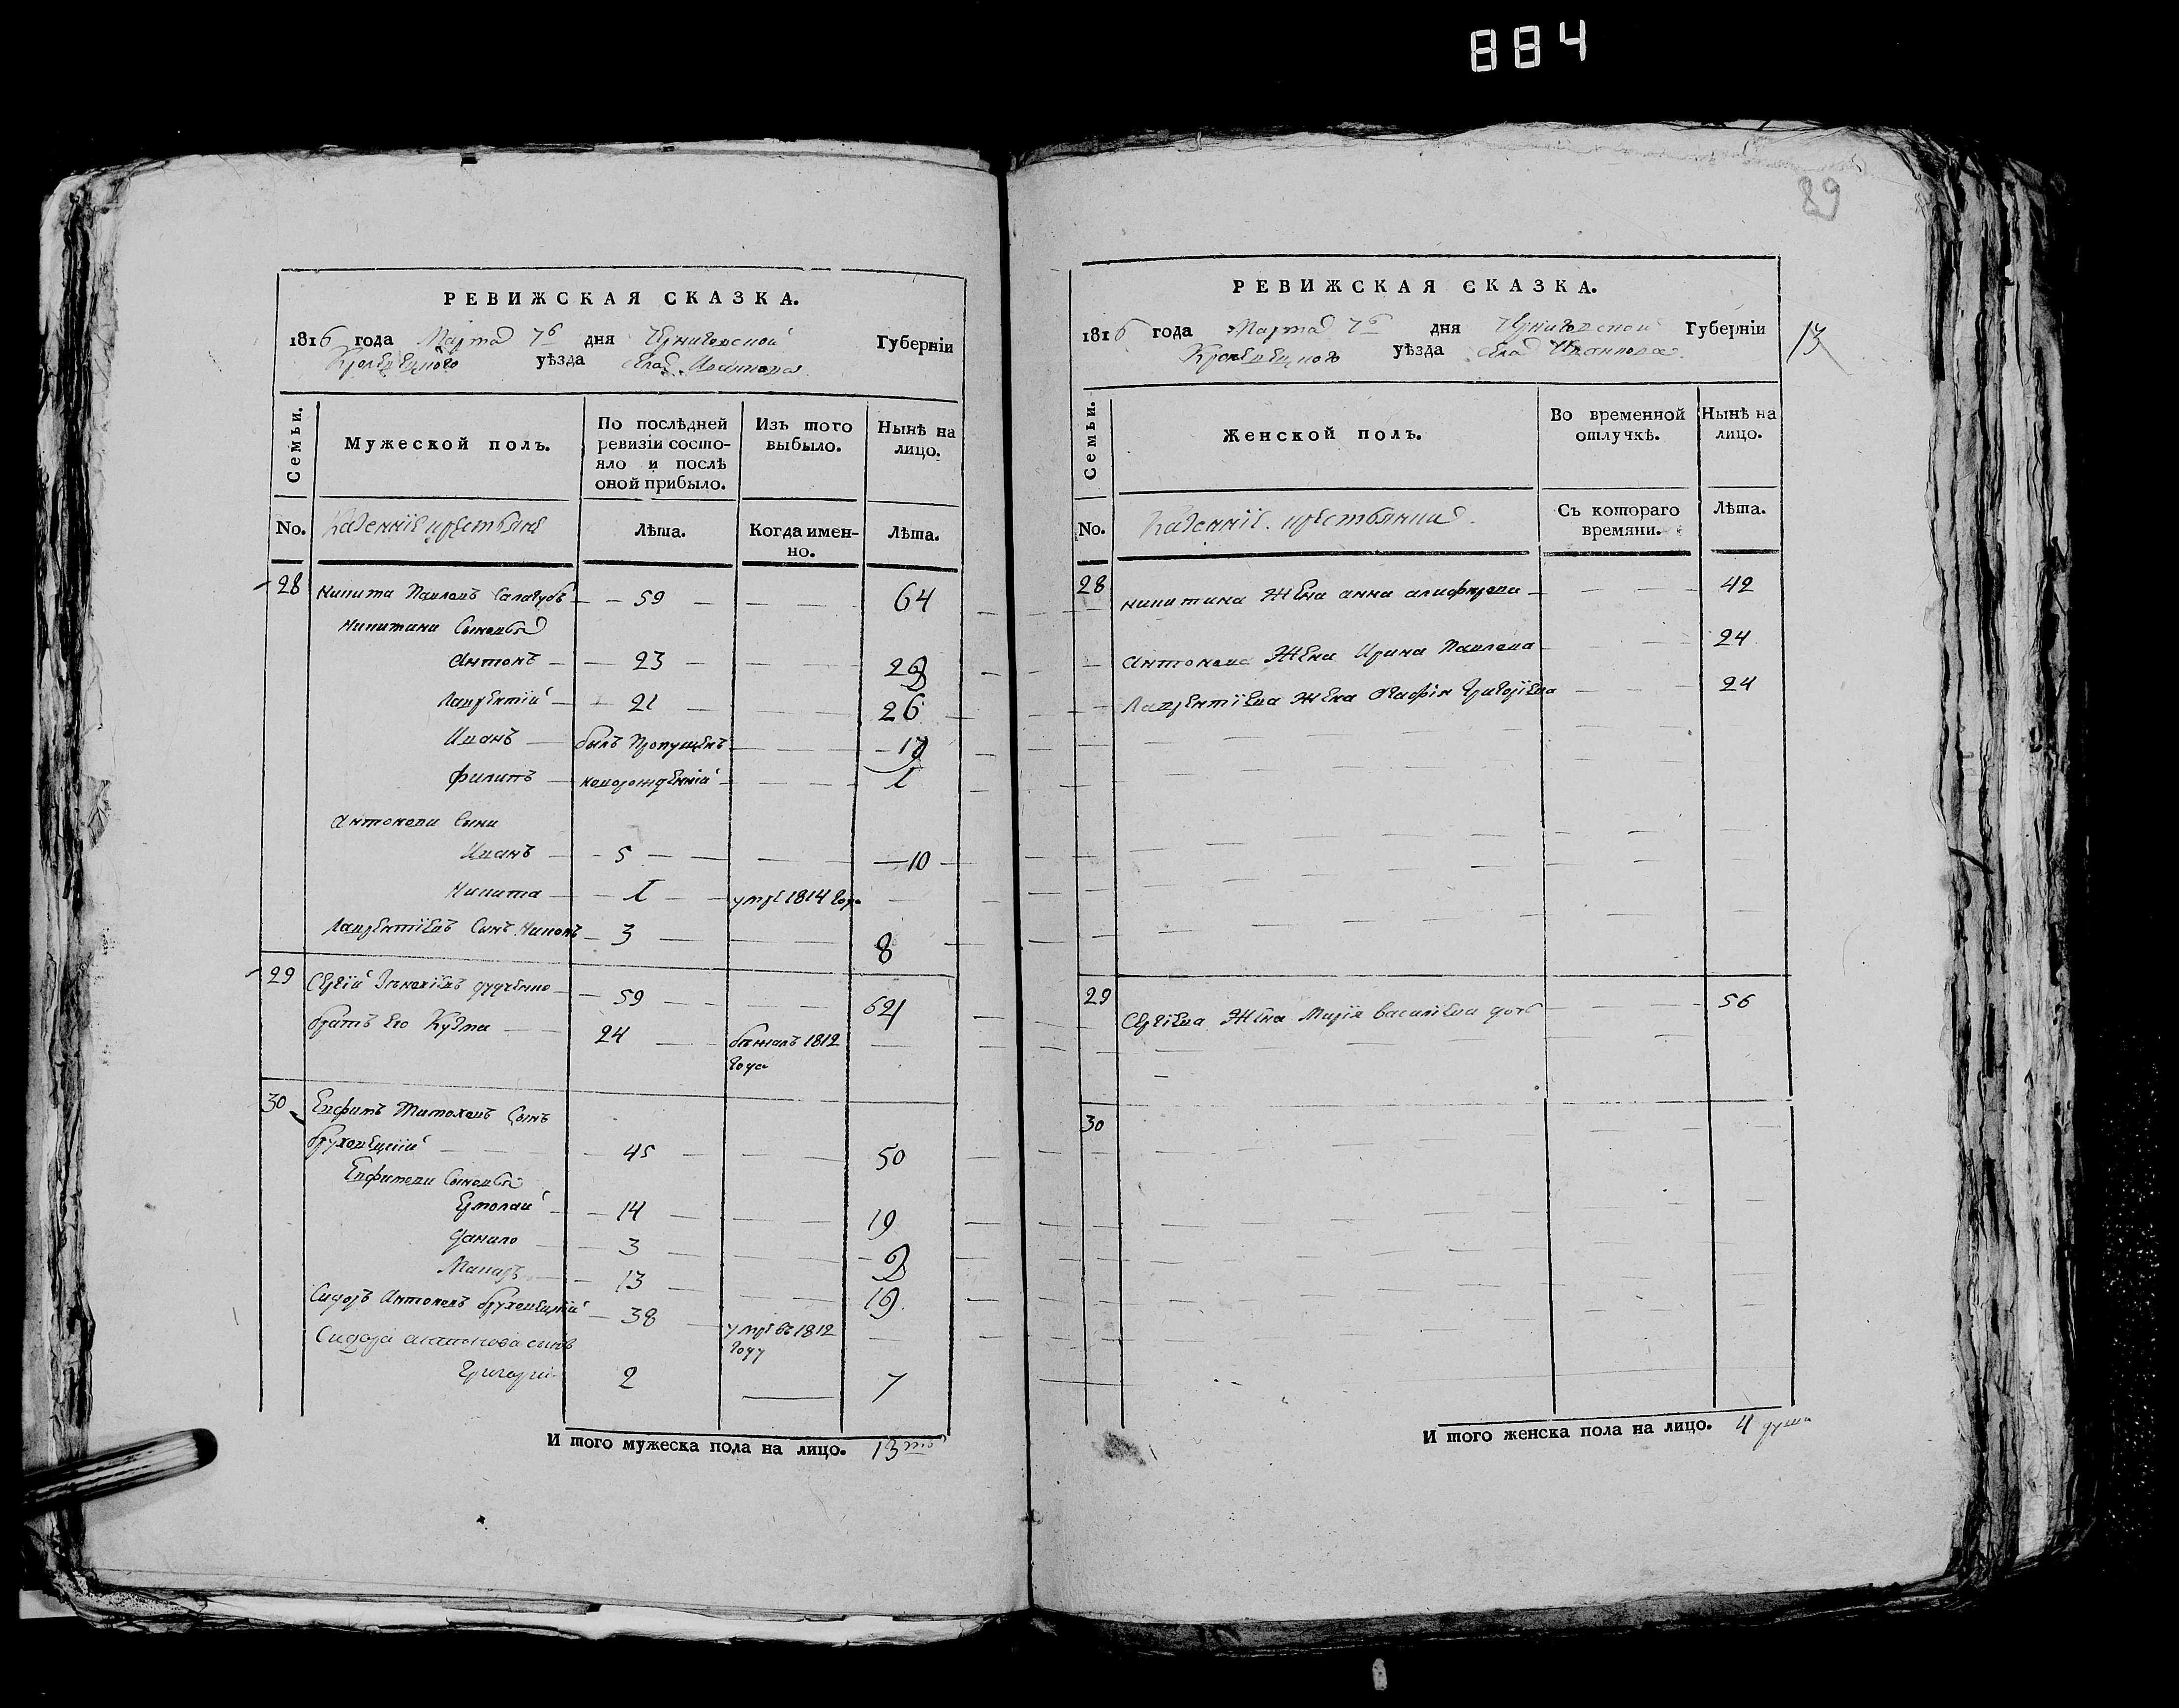 884
89
РЕВИЖСКАЯ СКАЗКА.
1816 года Марта 7 дня Черниговской Губерніи
Кролевецкого уѣзда села
Семьи.
Мужеской полъ.
По послѣдней ревизіи состояло и послѣ оной прибыло.
Изъ того выбыло.
Нынѣ на лицо.
No.
Казенніе
Лѣта.
Когда именно.
Лѣта.
28 Никита Павловъ 59 64
Никитини Сыновья
Антонъ 23 28
Лаврентій 21 26
Иванъ былъ пропущенъ 17
Филипъ новорожденній 1
Антонови Сыни
Иванъ 5 10
Никита 1 умре 1814 года
Лаврентіевъ Сынъ 3 8
29 Сергій 59 64
братъ его Кузма 24 бежалъ 1812
года
30 Евфимъ Сынъ
бруховецкій 45 50
Евфимови Сыновья
Ермолай 14 19
Данило 3 8
Макаръ 13 18
Сидоръ Антоновъ бруховецкій 38 умре въ 1812
году
Сидора Антонова сынъ
Григорій 2 7
И того мужеска пола на лицо. 13
РЕВИЖСКАЯ СКАЗКА.
1816 года Марта 7 дня Черниговской Губерніи
Кролевецкого уѣзда села
13
Семьи.
Женской полъ.
Во временной отлучкѣ.
Нынѣ на лицо.
No.
Казенніе
Съ котораго времяни.
Лѣта.
28 Никитина Жена анна 42
Антонова Жена Ирина Павлова 24
Лаврентіева Жена Агафія Григоріева 24
29 Сергіева Жена Марія василіева дочь 56
30
И того женска пола на лицо. 4 души